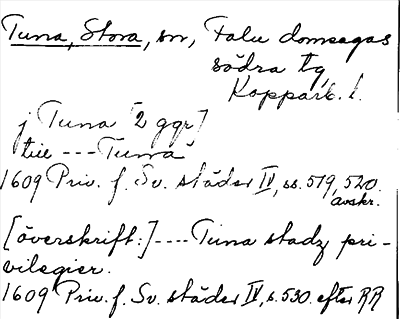 Tuna, Stora, sn, Falu domsagas
södra tg,
Kopparb. l.
j Tuna [2 ggr]
till --- Tuna
1609 Priv. f. Sv. städer IV, ss. 519, 520.
avskr.
[överskrift:] ---- Tuna stadz pri-
vilegier.
1609 Priv. f. Sv. städer IV, s. 530. efter RR